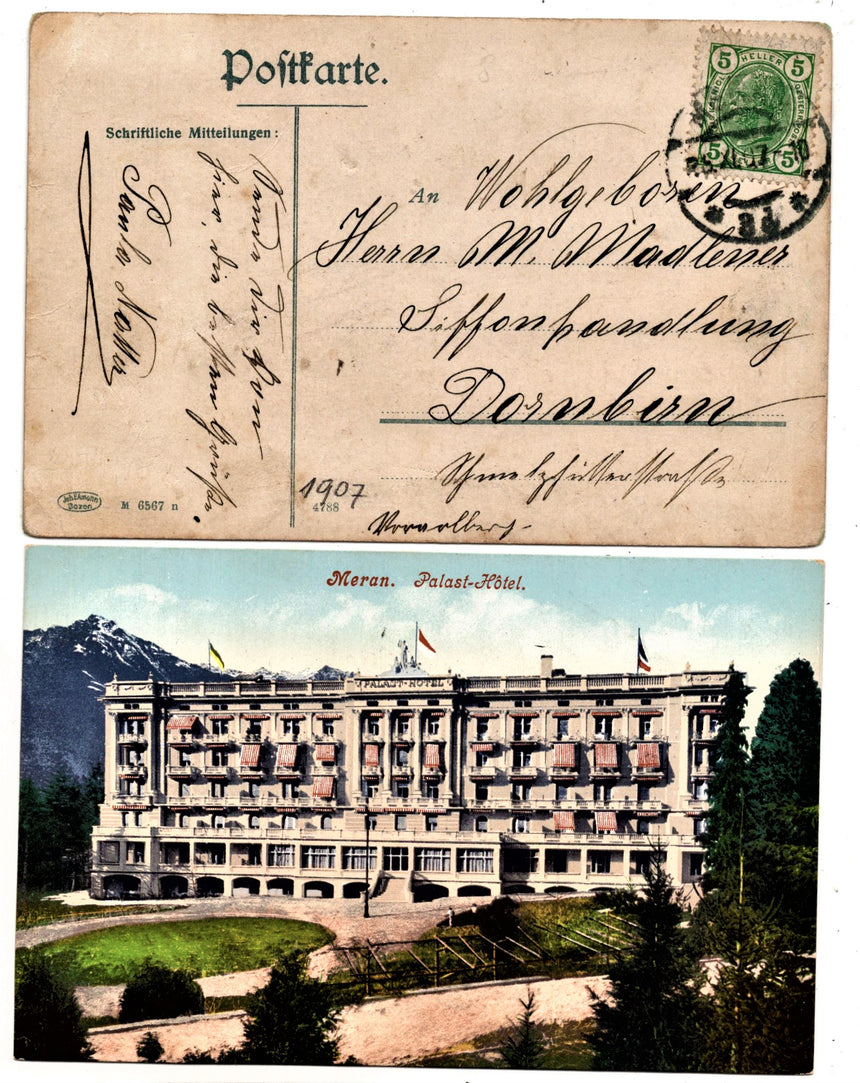 Postkarte.
5 HELLER 5
5 5
07 10
Schriftliche Mitteilungen:
Sende dir von
hier, die besten Grüße.
Paula
An Wohlgeboren
Herrn M. Madlener
Siffonhandlung
Dornbirn
Schmelzhütterstraße
Vorarlberg
1907
4788
Joh. F. Amonn
Bozen
M 6567 n
Meran. Palast-Hôtel.
PALAST-HOTEL